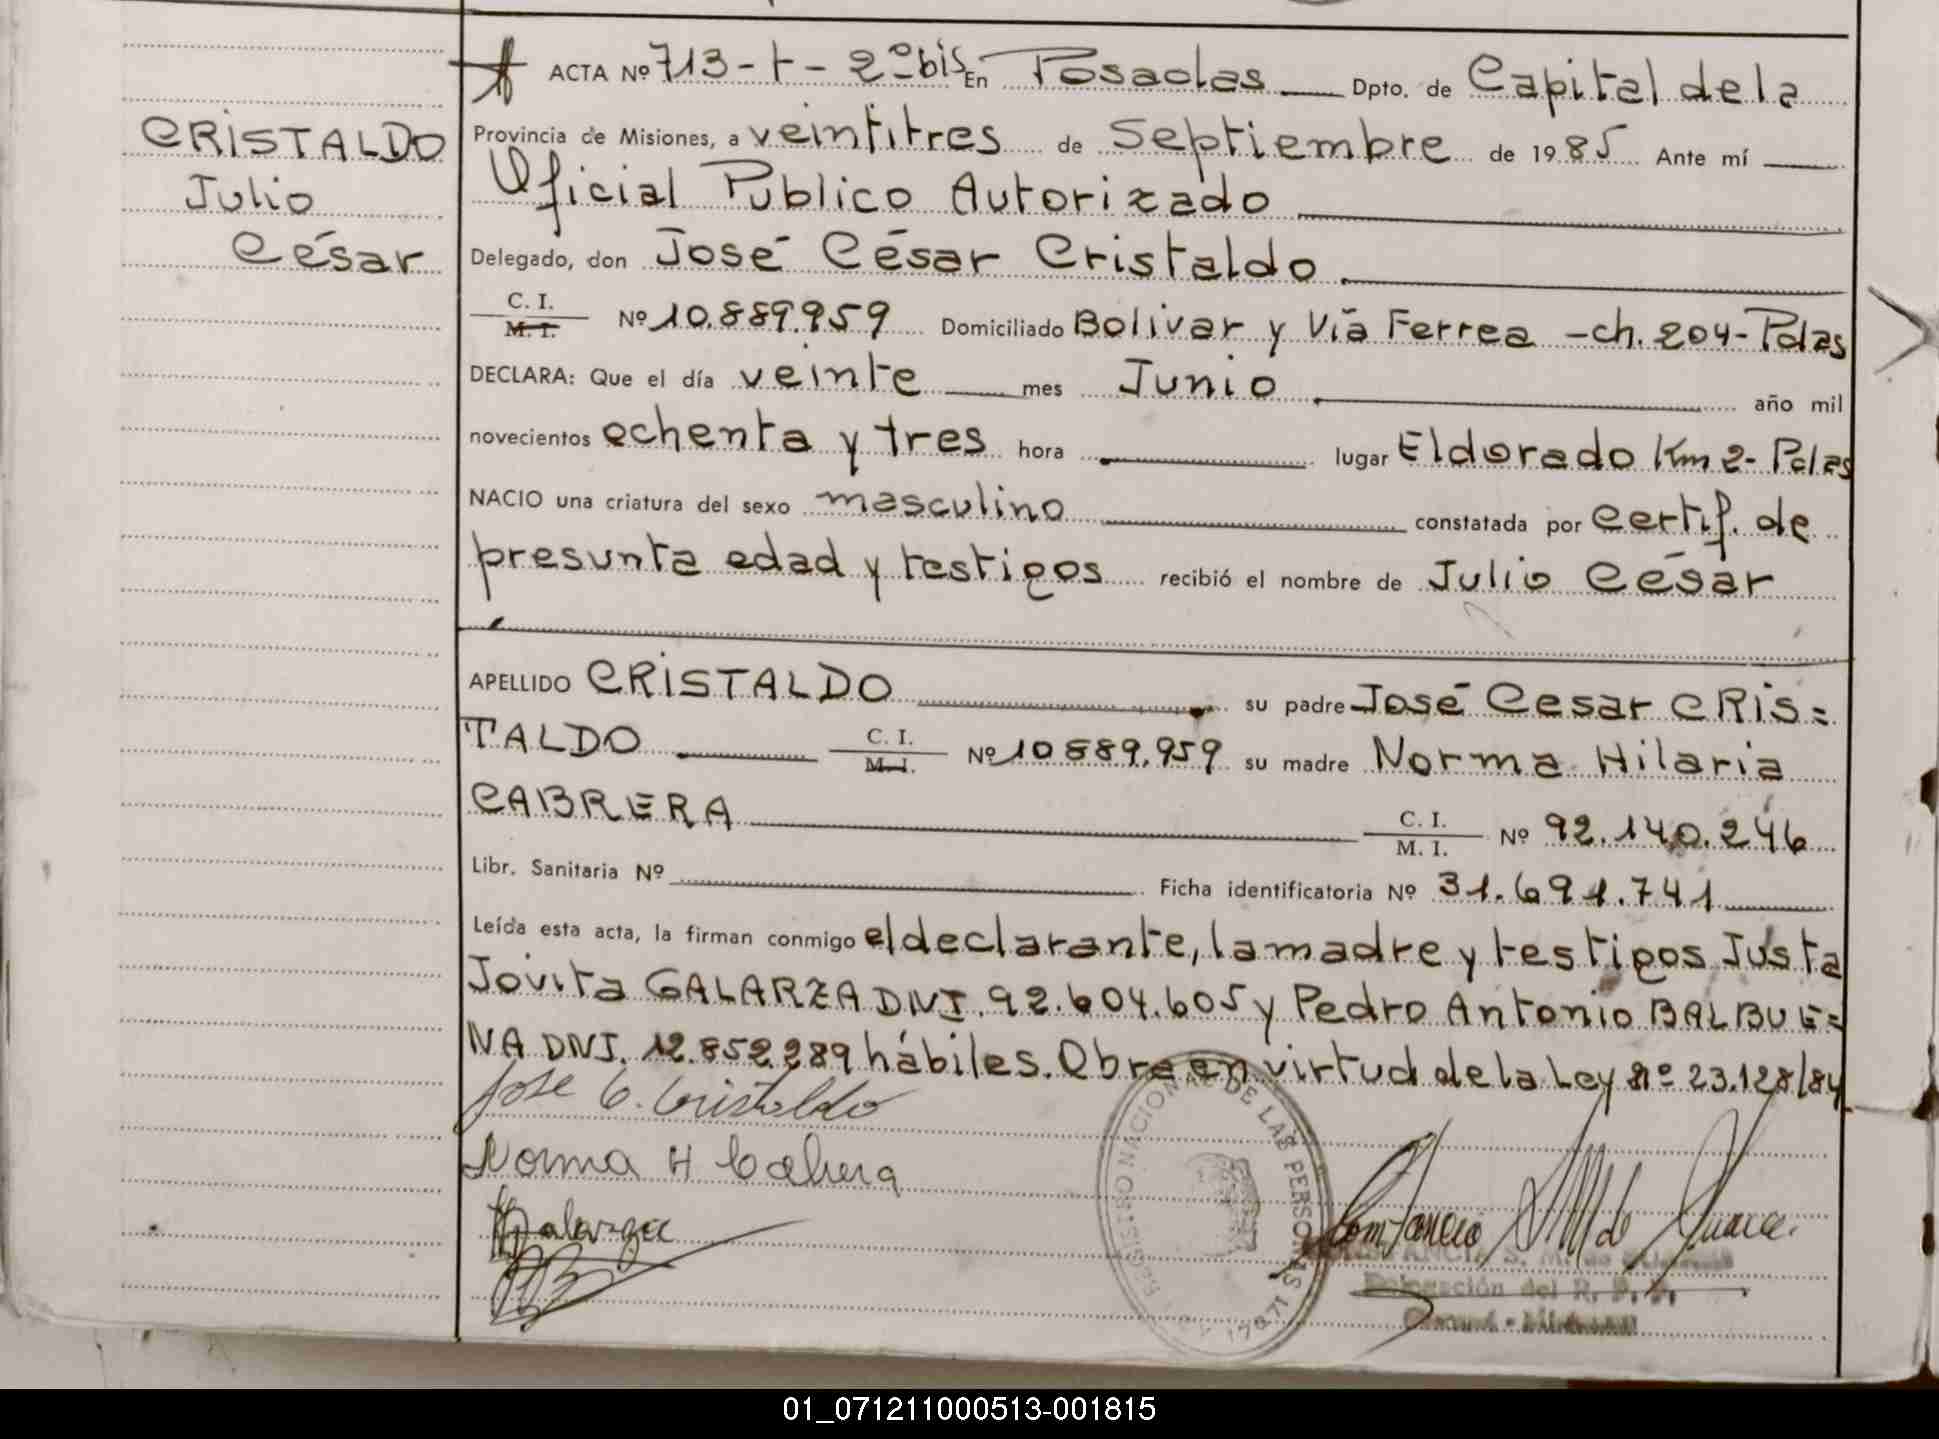 CRISTALDO
Julio
César
ACTA Nº 713-t-2º bis En Posadas Dpto. de Capital de la
Provincia de Misiones, a veintitres de Septiembre de 1985 Ante mí
Oficial Publico Autorizado
Delegado, don José César Cristaldo
C. I.
M. I. Nº 10.889.959 Domiciliado Bolivar y Vía Ferrea - ch. 204 - Pdas
DECLARA: Que el día veinte mes Junio año mil
novecientos ochenta y tres hora lugar Eldorado Km 2- Pdas
NACIO una criatura del sexo masculino constatada por Certif. de
presunta edad y testigos recibió el nombre de Julio César
APELLIDO CRISTALDO su padre José Cesar CRIS=
TALDO C. I.
M. I. Nº 10889.959 su madre Norma Hilaria
CABRERA C. I.
M. I. Nº 92.140.246
Libr. Sanitaria Nº Ficha identificatoria Nº 31.691.741
Leída esta acta, la firman conmigo el declarante, la madre y testigos Justa
Jovita GALARZA DNI. 92.604.605 y Pedro Antonio BALBUE=
NA DNI. 12.852.289 hábiles. Obra en virtud de la Ley nº 23.128/84
Jose C. Cristaldo
Norma H Cabrera
Galarza
REGISTRO NACIONAL DE LAS PERSONAS
Delegación del R. P.
01_071211000513-001815